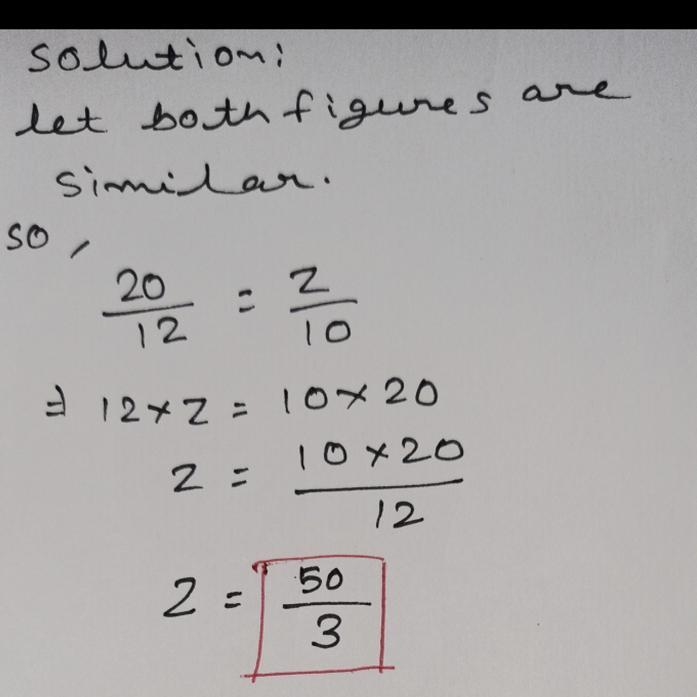 Solution:
let both figures are
similar.
so,
20/12 = z/10
⇒ 12 × z = 10 × 20
z = 10 × 20/12
z = 50/3